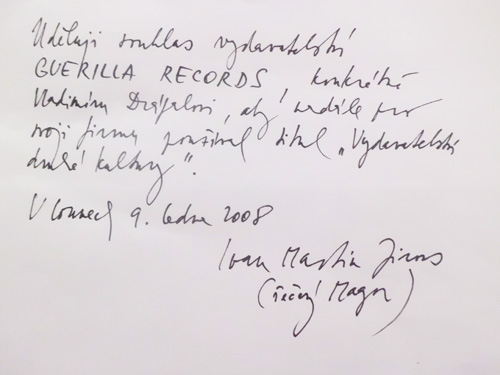 Uděluji souhlas vydavatelství
GUERILLA RECORDS, konkrétně
Vladimíru Drápalovi, aby nadále pro
svoji firmu používal titul „Vydavatelství
druhé kultury“.
V Lounech 9. ledna 2008
Ivan Martin Jirous
(řečený Magor)